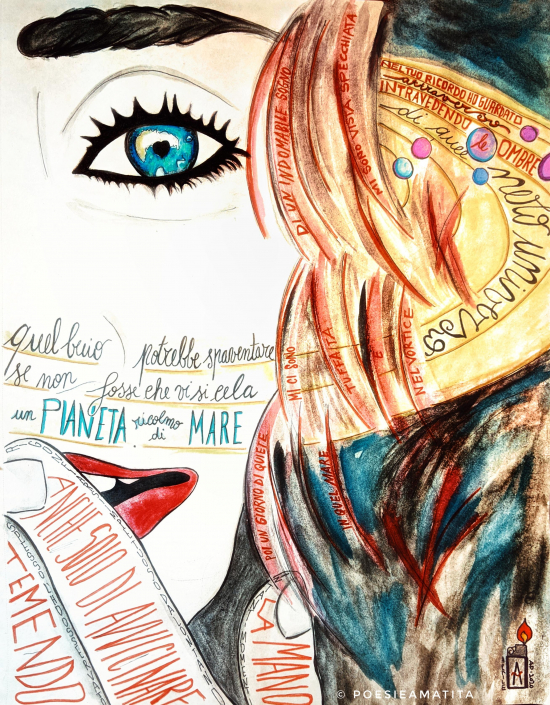 NEL TUO RICORDO HO GUARDATO
attraverso
INTRAVEDENDO le OMBRE
di quel
nero universo
quel buio potrebbe spaventare
se non fosse che vi si cela
un PIANETA ricolmo di MARE
POI UN GIORNO DI QUIETE
IN QUEL MARE
MI CI SONO
TUFFATA
E
NEL VORTICE
DI UN INDOMABILE SOGNO
MI SONO VISTA SPECCHIATA
TEMENDO
ANCHE SOLO DI AVVICINARE
LA MANO
A
© POESIEAMATITA